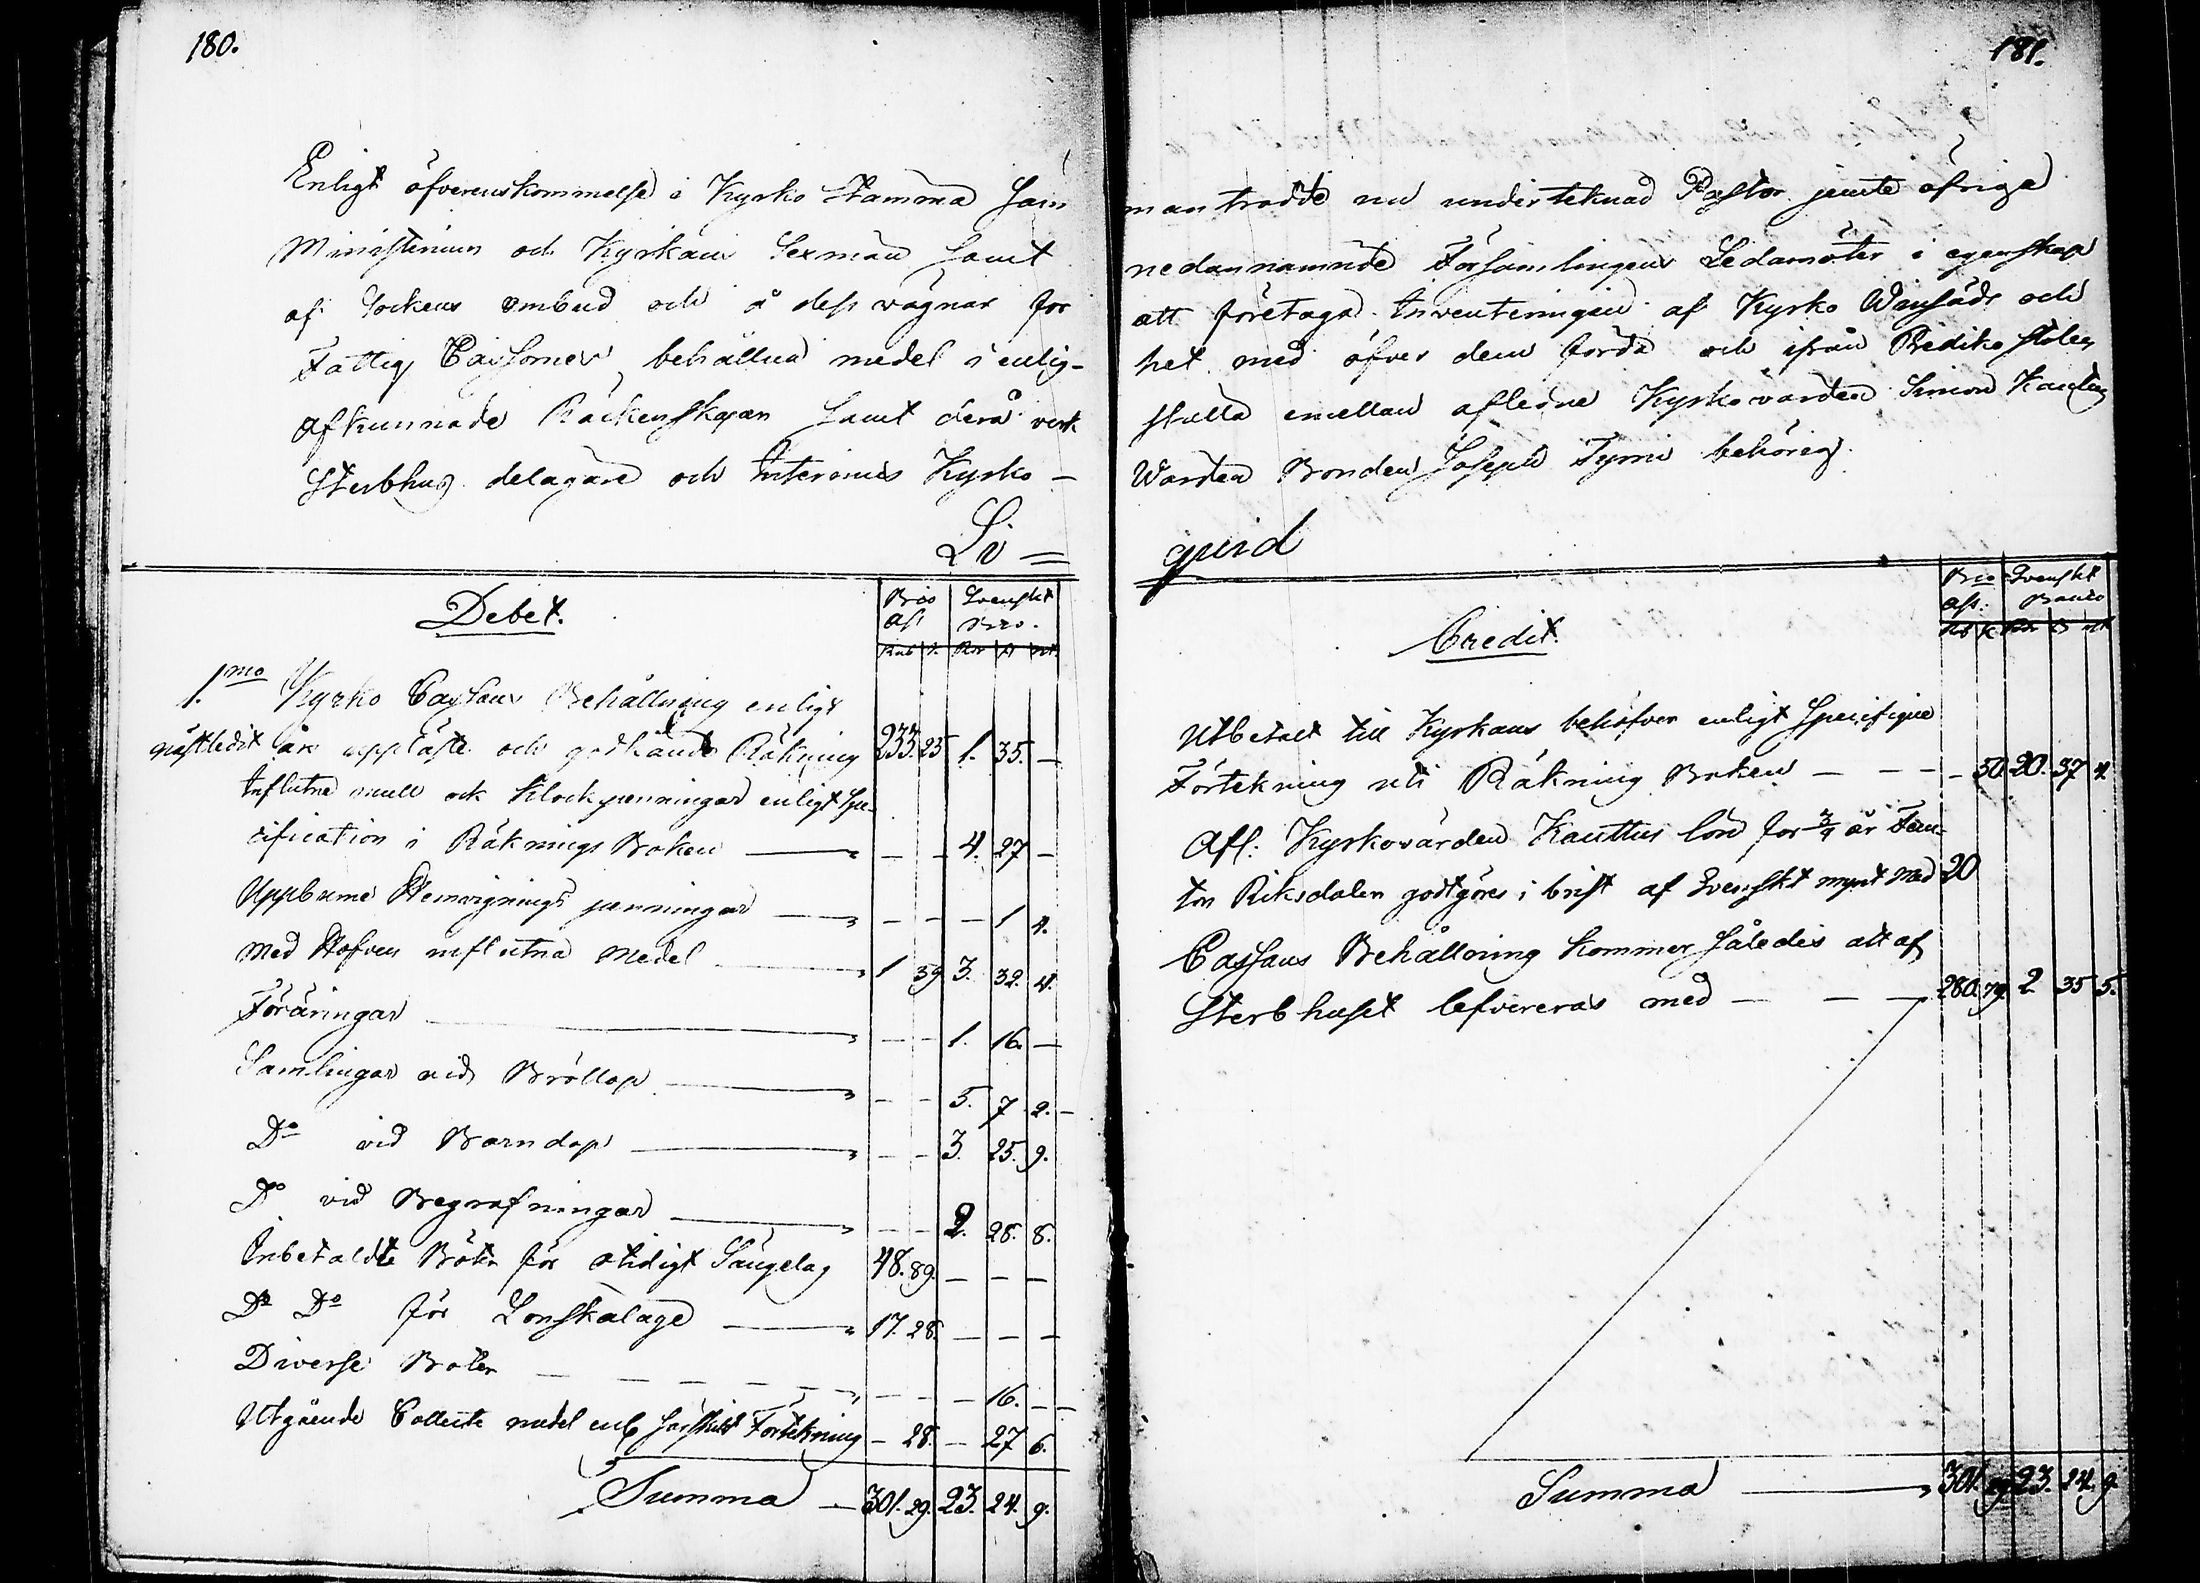 180.
Enligt öfverenskommelse i Kyrko Stamma sam
Ministerium och Kyrkans Sexmän samt
af Sockens ombud och å dess vägnar för
Fattig Cassornes behållna medel i enlig-
afkunnade Räckenskaper samt derå verk
Sterbhus delagare och Interims Kyrko -
Li =
Debet.
Bco Ass Svenskt Bco.
Rub k. Rdr s rst.
1.mo Kyrko Cassans Behållning enligt
nästledit år uppläste och godkände Räkning 233. 25 1. 35. —
Influtne mull och Klockpenningar enligt Spe-
cification i Räknings Boken — — — 4. 27 —
Uppburne Hemvignings penningar — — — — 1 4.
Med Hofven influtna Medel — 1 39 3. 32. 4.
Föräringar — — — 1. 16. —
Samlingar vid Bröllop — — — 5. 7 2. —
Do vid Barndop — — — 3. 25. 9.
Do vid Begrafningar — — — 2. 28. 8.
Inbetaldte Böter för otidigt Sängelag 48. 89. — — —
Do Do för Lönskalage — 17. 28. — — —
Diverse Böter — — — — — — — — — 16. — —
Utgående Collecte medel enl. särskild Förtekning — 28. — 27 6.
Summa — 301. 29. 23. 24. 9.
181.
mantrodde nu underteknad Pastor jemte öfriga
nedannamnde Församlingens Ledamöter i egenskap
att företaga Inventeringen af Kyrko och
het med öfver dem förda och ifrån Prediko stolen
stulla emellan afledne Kyrkovärden Simon Kauttus
Wärden Bonden Joseph Tyrni behörig.
quid
Credit.
Bco Ass. Svenskt Banco
Rub k Rdr s rst
Utbetalt till Kyrkans behöfver enligt Specifique
Förtekning uti Räkning Boken — — — — 50. 20. 37 4.
Afl: Kyrkovärden Kauttus lön för 3/4 år Fem-
ton Riksdaler godtgöres i brist af Svenskt mynt med 20
Cassans Behållning kommer således att af
Sterbhuset lefvereras med — — — 280. 79. 2 35 5.
Summa — 301. 29 23. 24. 9